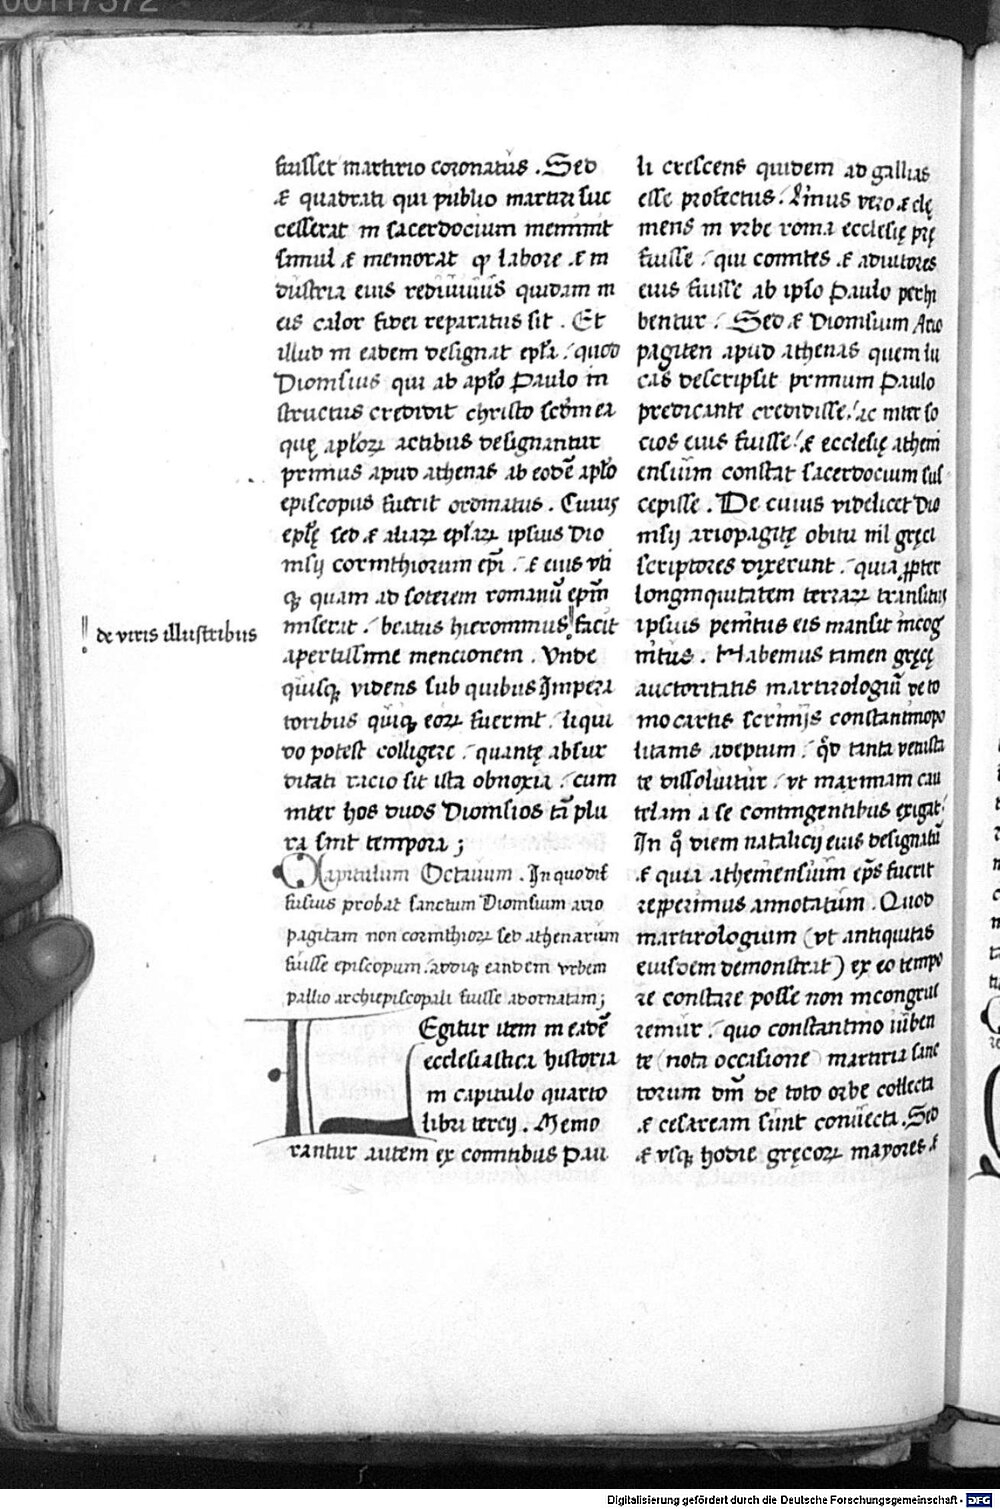 00117372
fuisset martirio coronatus . Sed
& quadrati qui publio martiri suc
cesserat in sacerdocium meminit
simul & memorat qꝫ labore & in
dustria eius rediuiuus quidam in
eis calor fidei reparatus sit . Et
illud in eadem designat ep̄la : quod
Dionisius qui ab ap̄lo Paulo in
structus credidit christo sc̄dm ea
quę ap̄loꝝ actibus designantur
primus apud athenas ab eodē ap̄lo
episcopus fuerit ordinatus . Cuius
ep̄lę sed & aliaꝝ ep̄laꝝ ipsius Dio
nisij corinthiorum ep̄i : & eius uti
qꝫ quam ad soterem romanū ep̄m
miserat : beatus hieronimus facit
de viris illustribus
apertissime mencionem . Vnde
quisqꝫ videns sub quibus Impera
toribus quiqꝫ eoꝝ fuerint : liqui
do potest colligere : quantę absur
ditati racio sit ista obnoxia : cum
inter hos duos Dionisios tā plu
ra sint tempora ;
Capitulum Octauum . In quo dif
fusius probat sanctum Dionisium ario
pagitam non corinthioꝝ sed athenarum
fuisse episcopum : addiqꝫ eandem vrbem
pallio archiepiscopali fuisse adornatam ;
Legitur item in eadē
ecclesiastica historia
in capitulo quarto
libri tercij . Memo
rantur autem ex comitibus Pau
li crescens quidem ad gallias
esse profectus : Linus vero & clę
mens in vrbe roma ecclesię prę
fuisse : qui comites & adiutores
eius fuisse ab ipso Paulo perhi
bentur : Sed & Dionisium Ario
pagiten apud athenas quem lu
cas descripsit primum Paulo
predicante credidisse : ac inter so
cios eius fuisse : & ecclesię atheni
ensium constat sacerdocium sus
cepisse . De cuius videlicet Dio
nisij ariopagitę obitu nil gręci
scriptores dixerunt : quia ꝓpter
longinquitatem terraꝝ transitus
ipsius penitus eis mansit incog
nitus . Habemus tamen gręcę
auctoritatis martirologiū de to
mo cartis scrinijs constantinopo
litanis adeptum : qd̄ tanta venusta
te dissoluitur : vt maximam cau
telam a se contingentibus exigat :
In q̊ diem natalicij eius designatū
& quia atheniensium ep̄s fuerit
repperimus annotatum . Quod
martirologium (vt antiquitas
eiusdem demonstrat) ex eo tempo
re constare posse non incongrue
remur : quo constantino iuben
te (nota occasione) martiria sanc
torum dn̄i de toto orbe collecta
& cesaream sunt conuecta . Sed
& vsqꝫ hodie gręcoꝝ mayores &
Digitalisierung gefördert durch die Deutsche Forschungsgemeinschaft - DFG